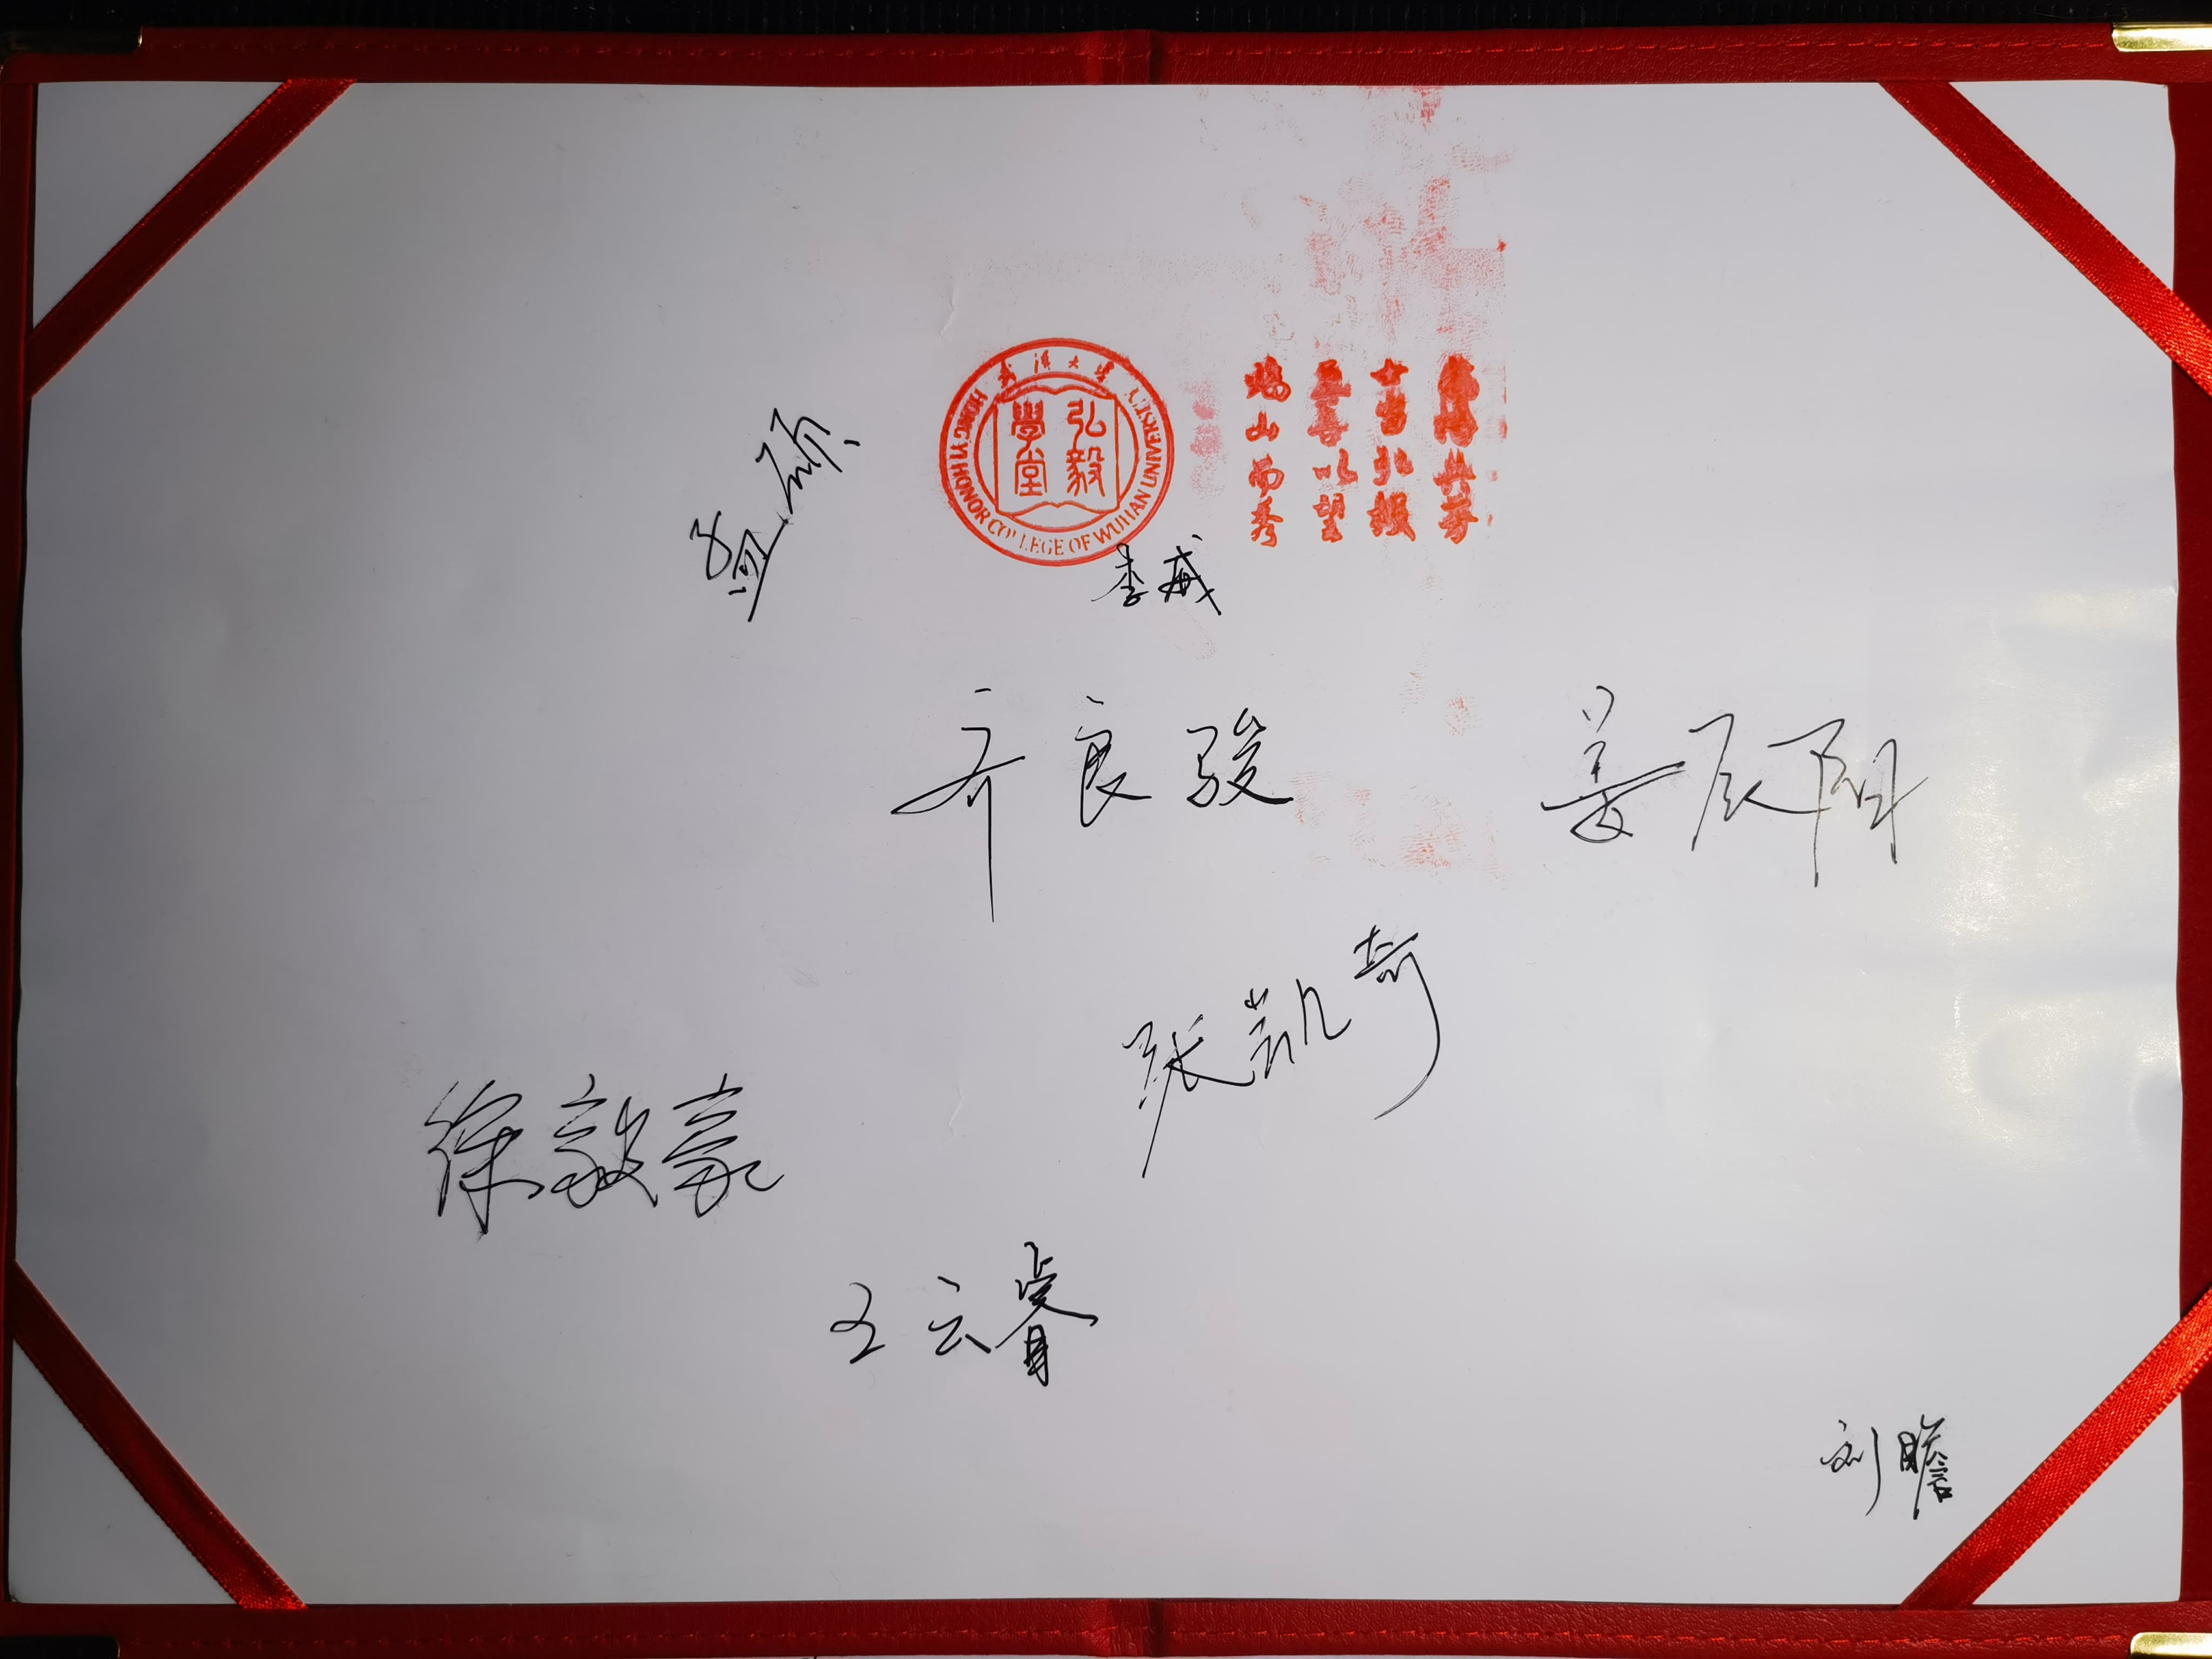 武汉大学
弘毅
學堂
HONGYI HONOR COLLEGE OF WUHAN UNIVERSITY
士当弘毅
以望
珞山而秀
李威
齐良骏
姜辰阳
张凯奇
徐毅豪
王云睿
刘瞻